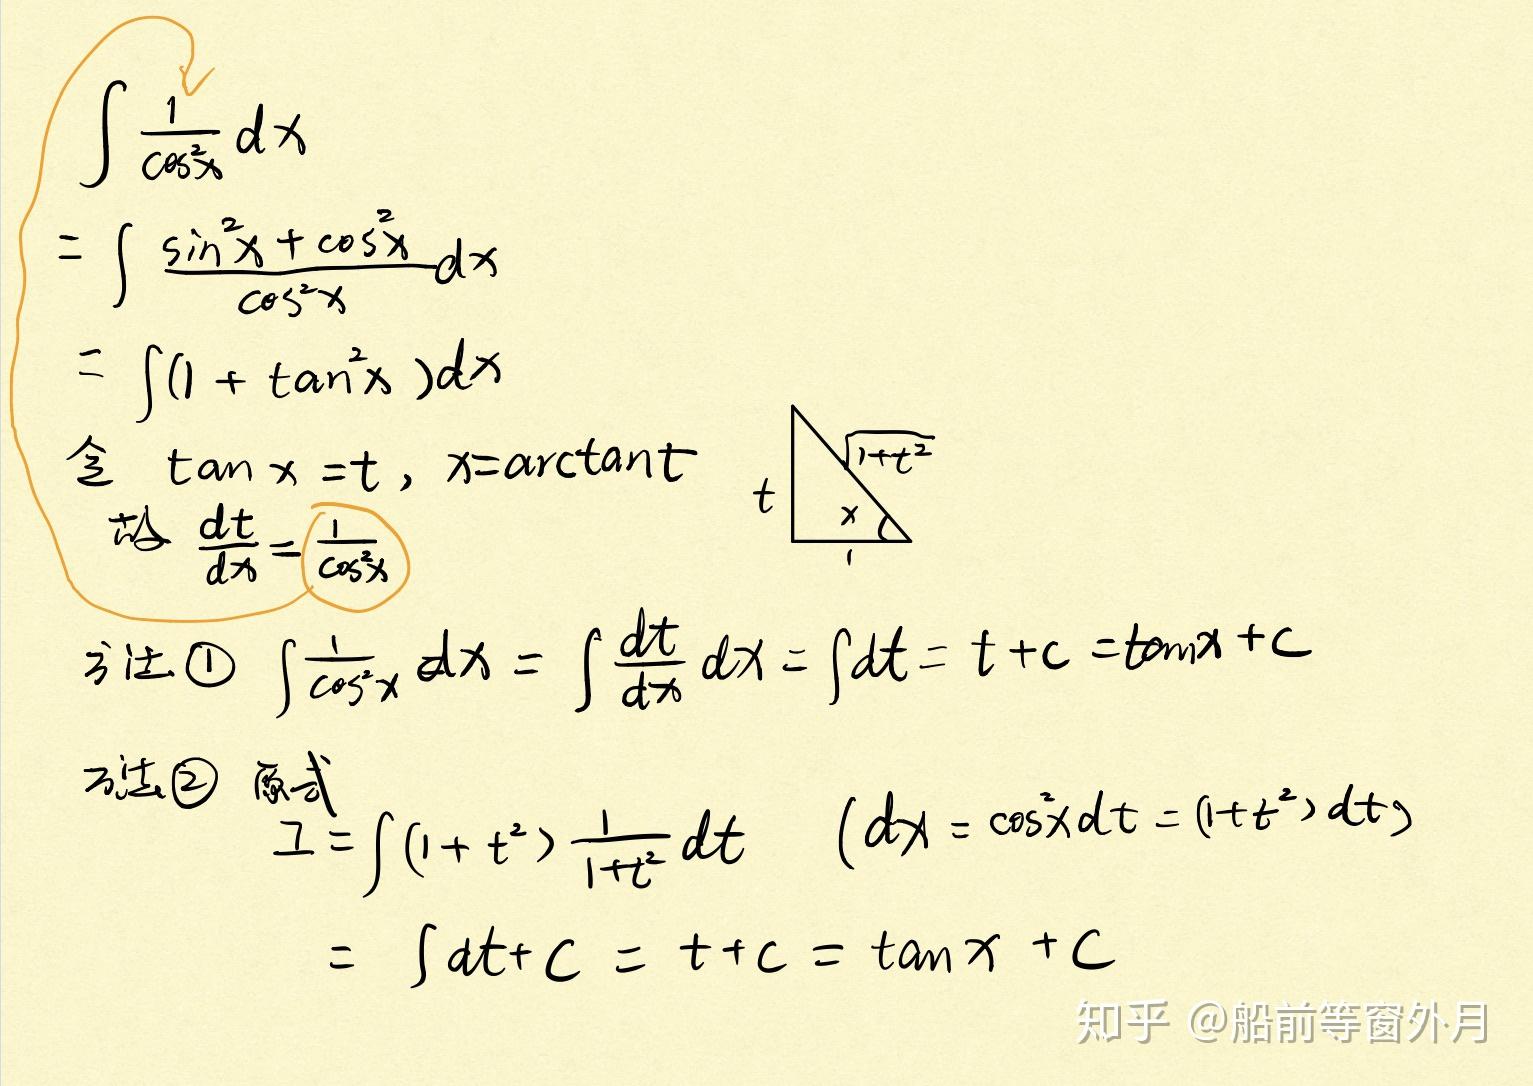 ∫ 1/cos²x dx
= ∫ (sin²x + cos²x)/cos²x dx
= ∫(1 + tan²x)dx
令 tan x = t, x = arctan t
√(1+t²)
t
x
1
故 dt/dx = 1/cos²x
方法① ∫ 1/cos²x dx = ∫ dt/dx dx = ∫dt = t + c = tanx + C
方法② 原式
I = ∫(1 + t²) 1/(1+t²) dt (dx = cos²x dt = (1+t²) dt)
= ∫dt + C = t + c = tan x + C
知乎 @船前等窗外月